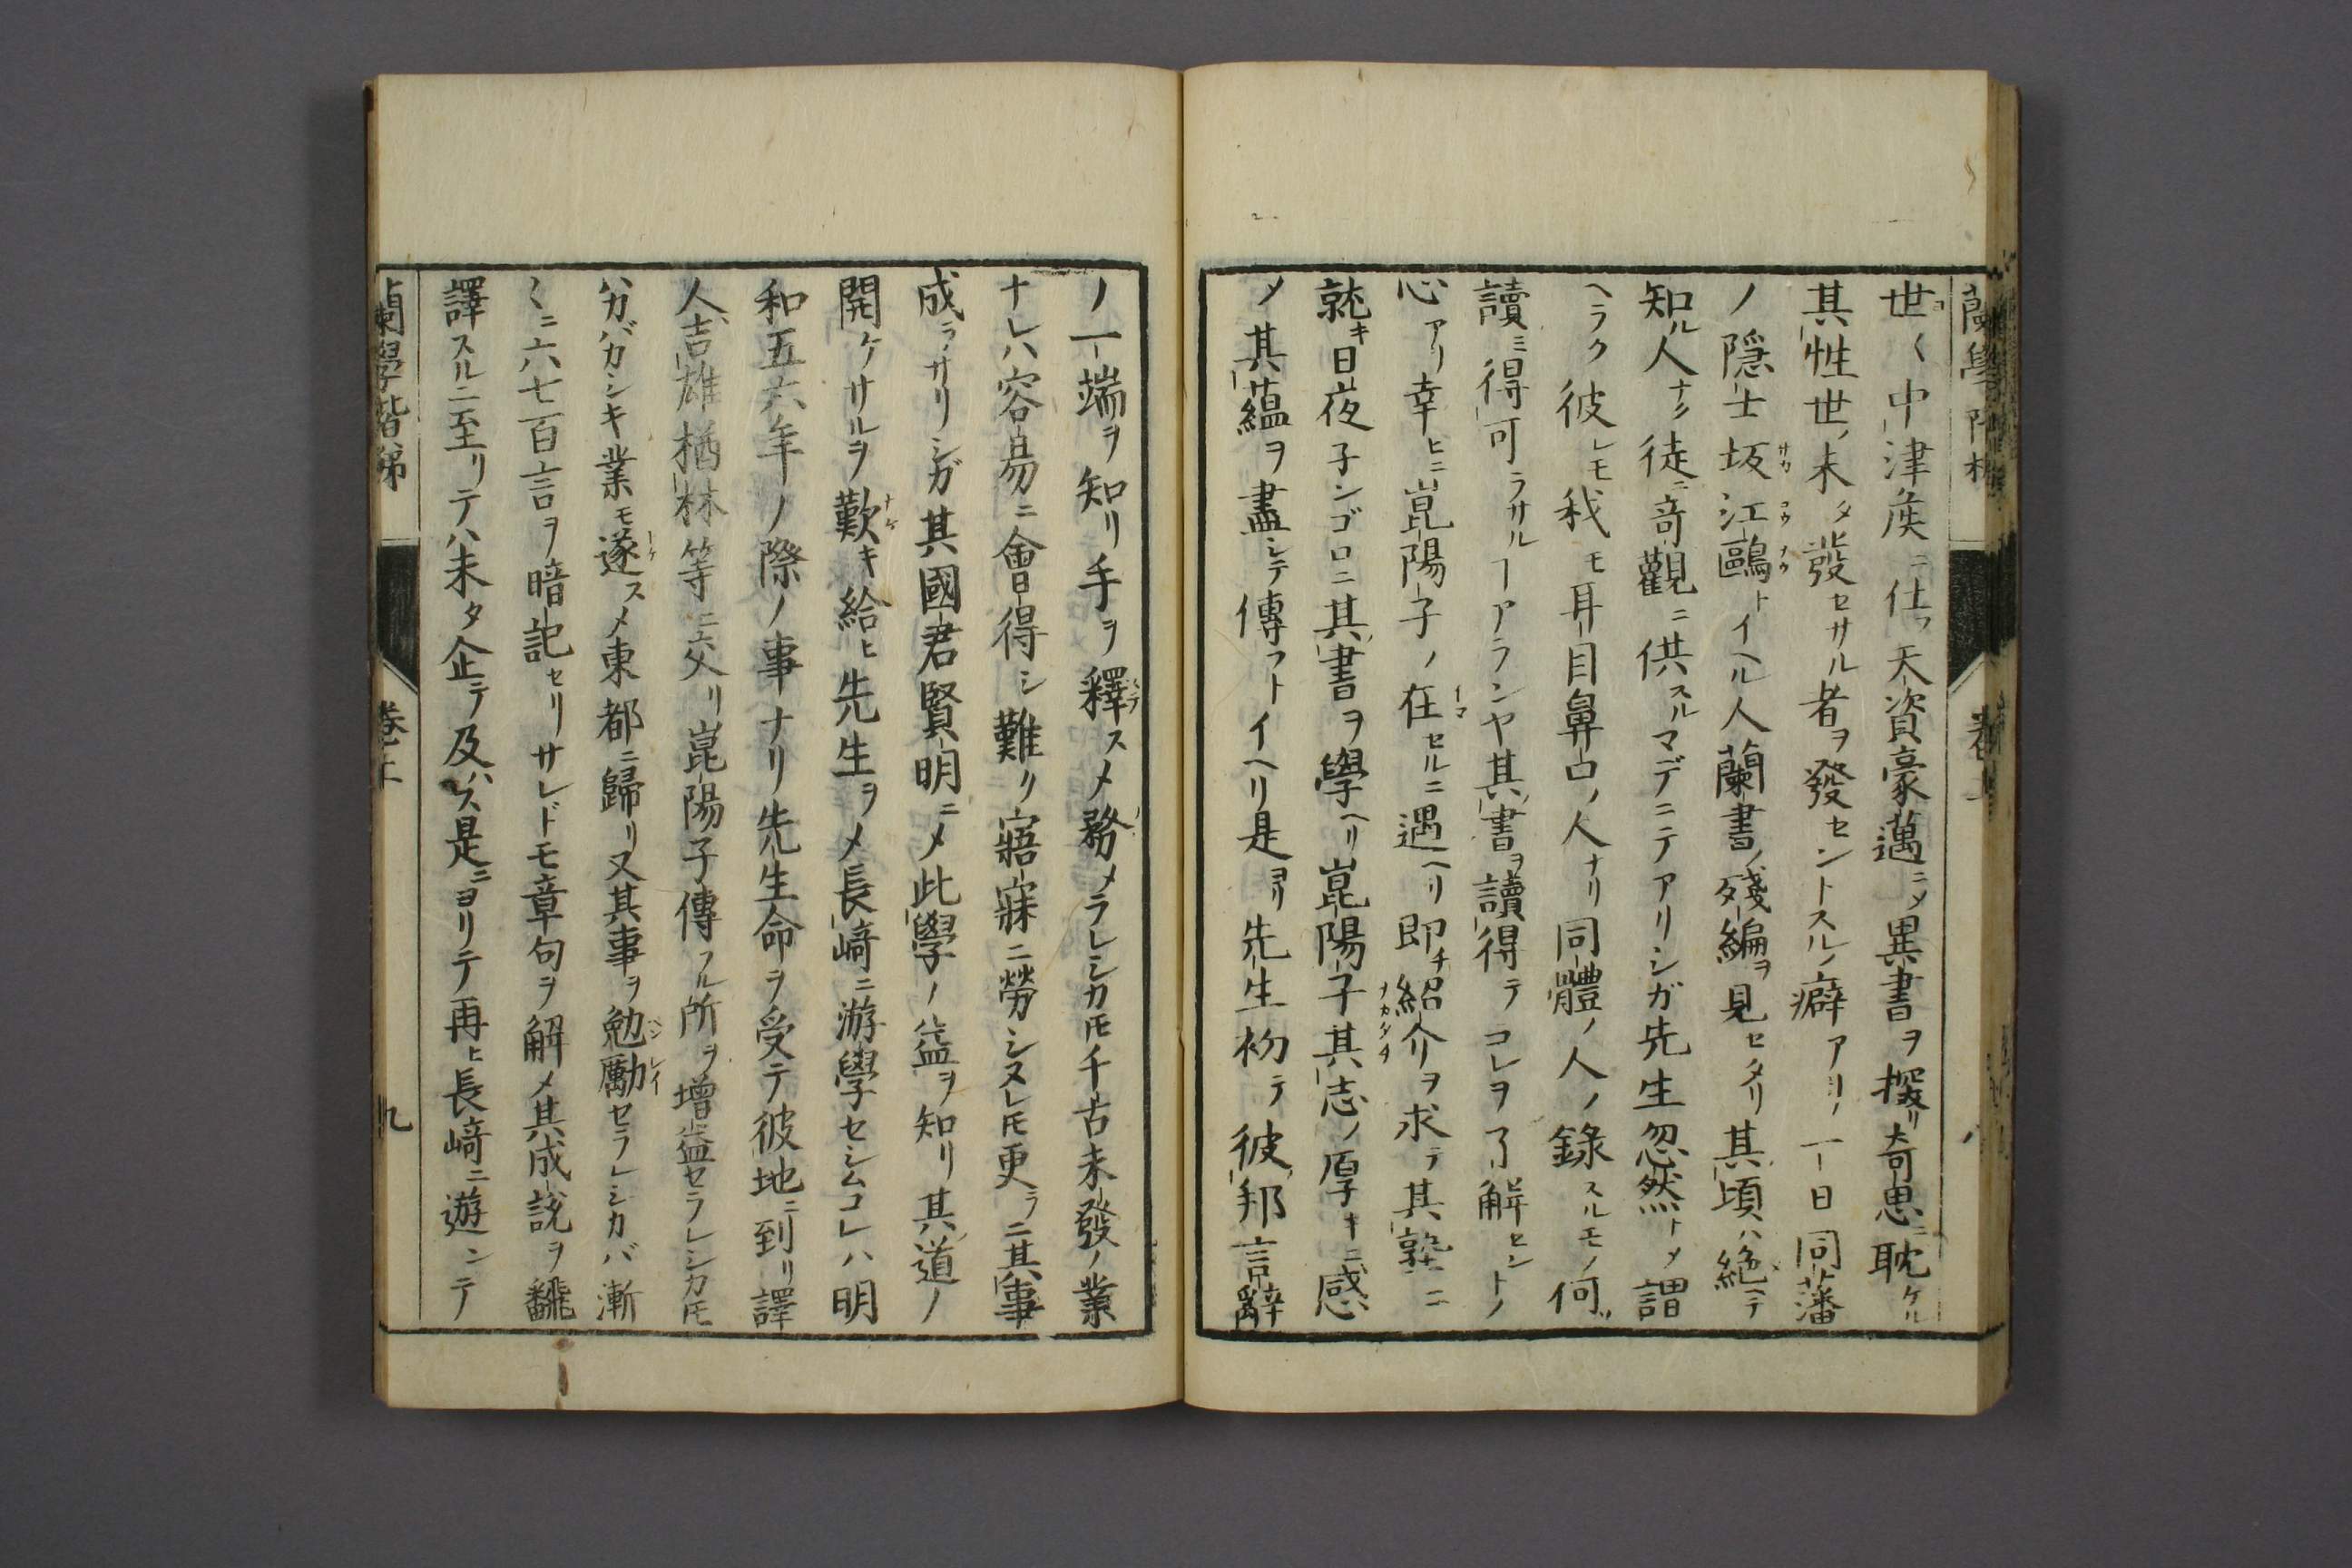 蘭學階梯 卷上 八
世〻中津矦ニ仕フ天資豪邁ニ〆異書ヲ探リ奇思ニ耽ケル
其性世ノ未タ發セサル者ヲ發セントスルノ癖アリ一日同藩
ノ隱士坂江鷗トイヘル人蘭書ノ殘編ヲ見セタリ其頃ハ絶ヘテ
知ル人ナク徒ニ奇觀ニ供スルマデニテアリシガ先生忽然ト〆謂
ヘラク彼レモ我モ耳目鼻口ノ人ナリ同體ノ人ノ錄スルモノ何ゾ
讀ミ得可ラサルヿアランヤ其書ヲ讀得テコレヲ了解セントノ
心アリ幸ヒニ崑陽子ノ在セルニ遇ヘリ即チ紹介ヲ求テ其塾ニ
就キ日夜子ンゴロニ其書ヲ學ヘリ崑陽子其志ノ厚キニ感
〆其蘊ヲ盡シテ傳フトイヘリ是ヨリ先生初テ彼邦言辭
ノ一端ヲ知リ手ヲ釋ス〆務メラレシカ𪜈千古未發ノ業
ナレハ容易ニ會得シ難ク寤寐ニ勞シヌレ𪜈更ラニ其事
成ラサリシガ其國君賢明ニ〆此學ノ益ヲ知リ其道ノ
開ケサルヲ歎キ給ヒ先生ヲ〆長崎ニ游學セシムコレハ明
和五六年ノ際ノ事ナリ先生命ヲ受テ彼地ニ到リ譯
人吉雄楢林等ニ交リ崑陽子傳フル所ヲ增益セラレシカ𪜈
ハカバカシキ業モ遂ス〆東都ニ歸リ又其事ヲ勉勵セラレシカバ漸
〱ニ六七百言ヲ暗記セリサレドモ章句ヲ解〆其成說ヲ飜
譯スルニ至リテハ未タ企テ及ハス是ニヨリテ再ヒ長崎ニ遊ンテ
蘭學階梯 卷上 九